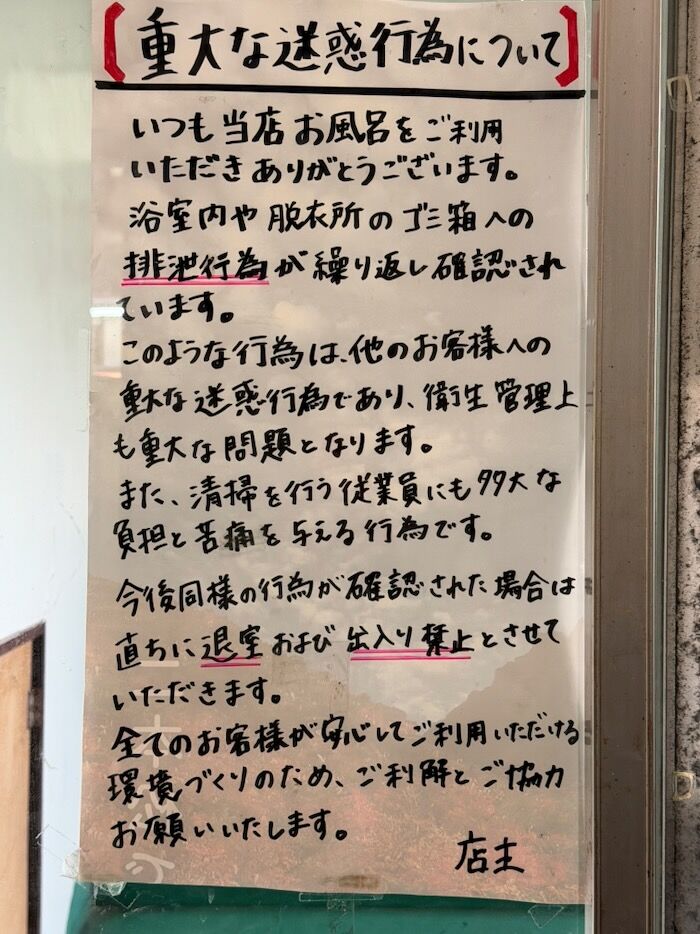 【重大な迷惑行為について】
いつも当店お風呂をご利用
いただきありがとうございます。
浴室内や脱衣所のゴミ箱への
排泄行為が繰り返し確認され
ています。
このような行為は、他のお客様への
重大な迷惑行為であり、衛生管理上
も重大な問題となります。
また、清掃を行う従業員にも多大な
負担と苦痛を与える行為です。
今後同様の行為が確認された場合は
直ちに退室および出入り禁止とさせて
いただきます。
全てのお客様が安心してご利用いただける
環境づくりのため、ご利解とご協力
お願いいたします。
店主